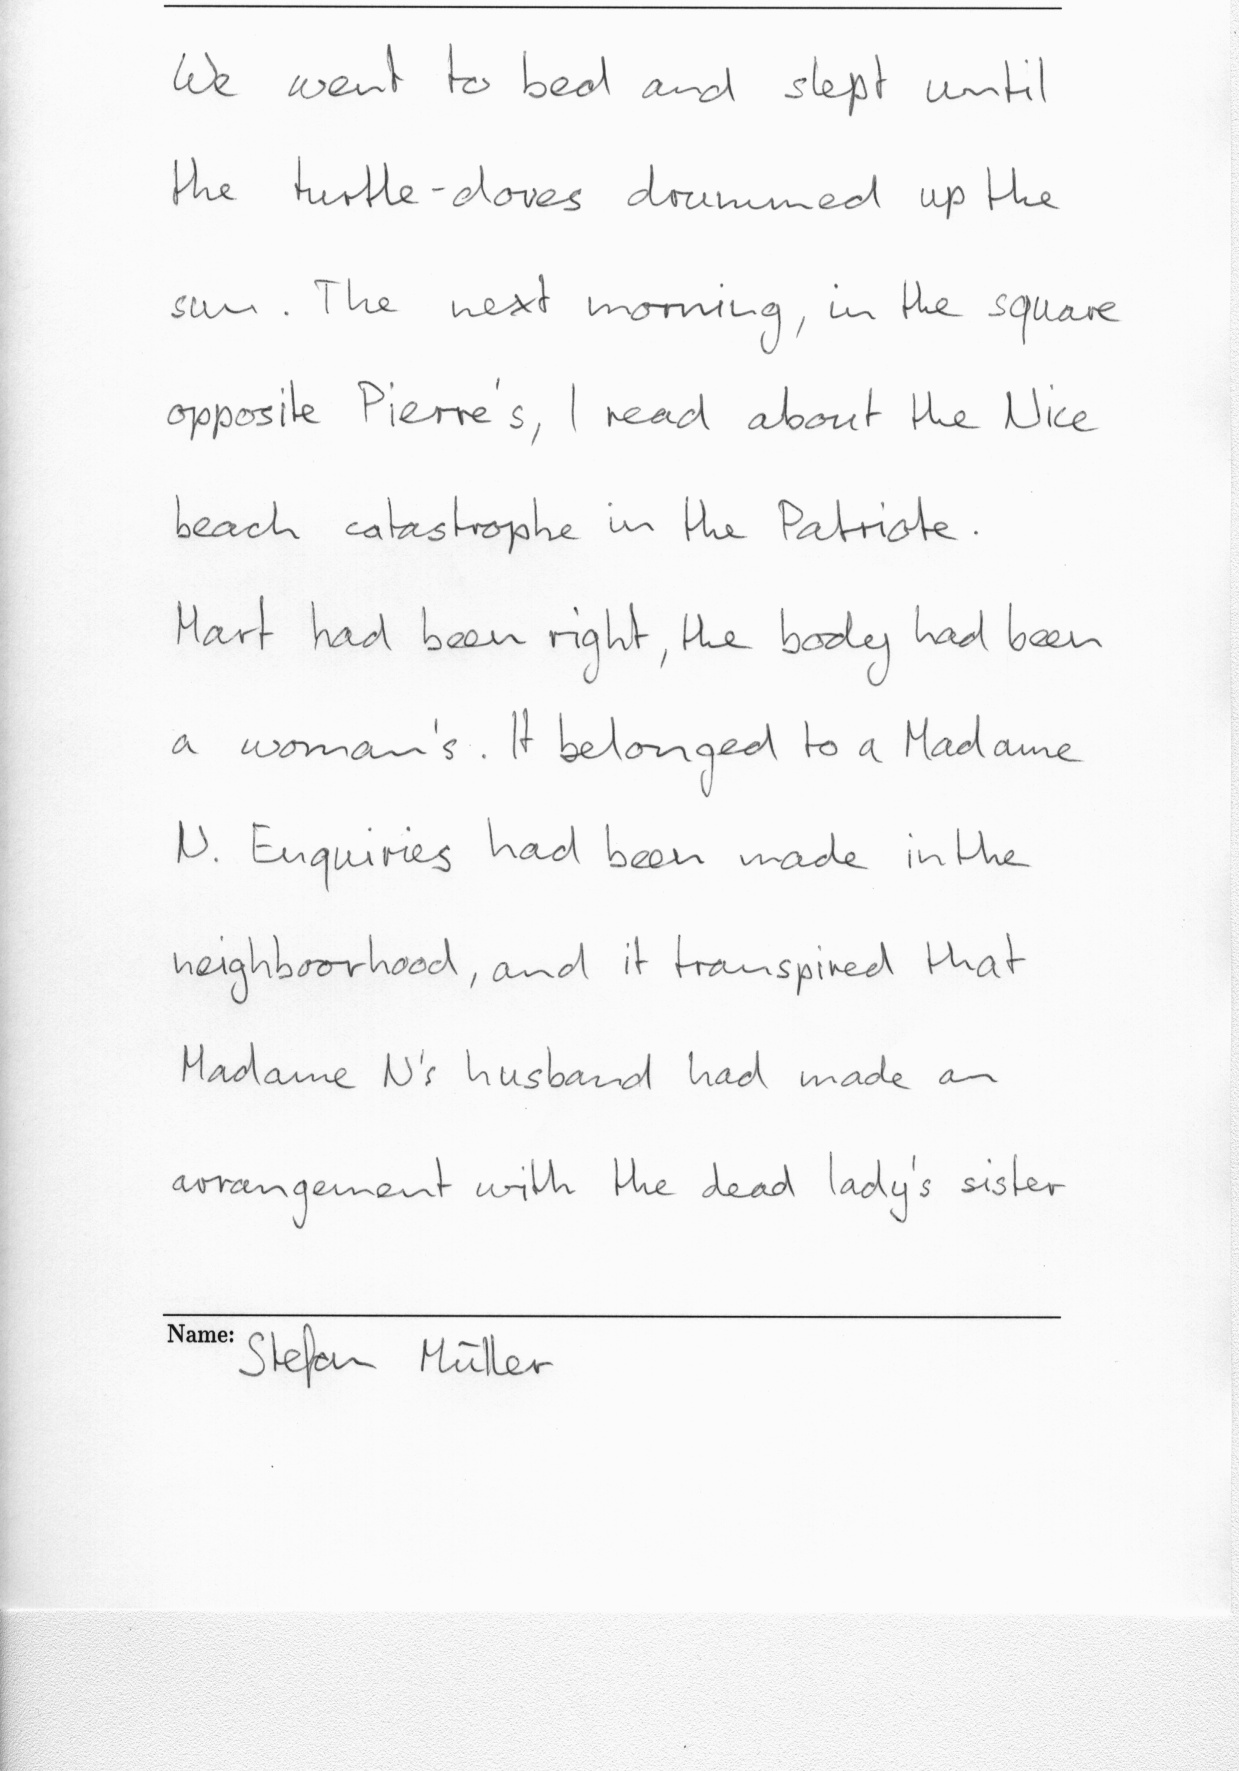 We went to bed and slept until
the turtle-doves drummed up the
sun. The next morning, in the square
opposite Pierre's, I read about the Nice
beach catastrophe in the Patriote.
Mart had been right, the body had been
a woman's. It belonged to a Madame
N. Enquiries had been made in the
neighboorhood, and it transpired that
Madame N's husband had made an
arrangement with the dead lady's sister
Name: Stefan Müller